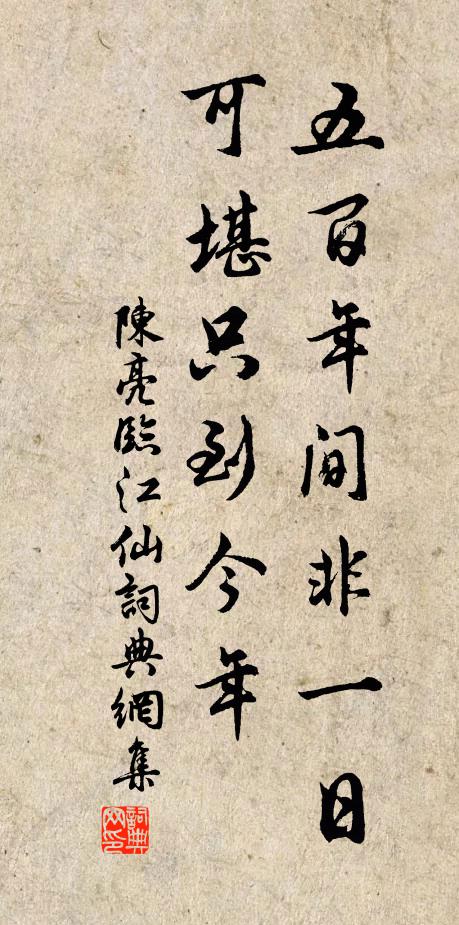 五百年間非一日
可堪只到今年
陳亮臨江仙詞典網集
詞典網印